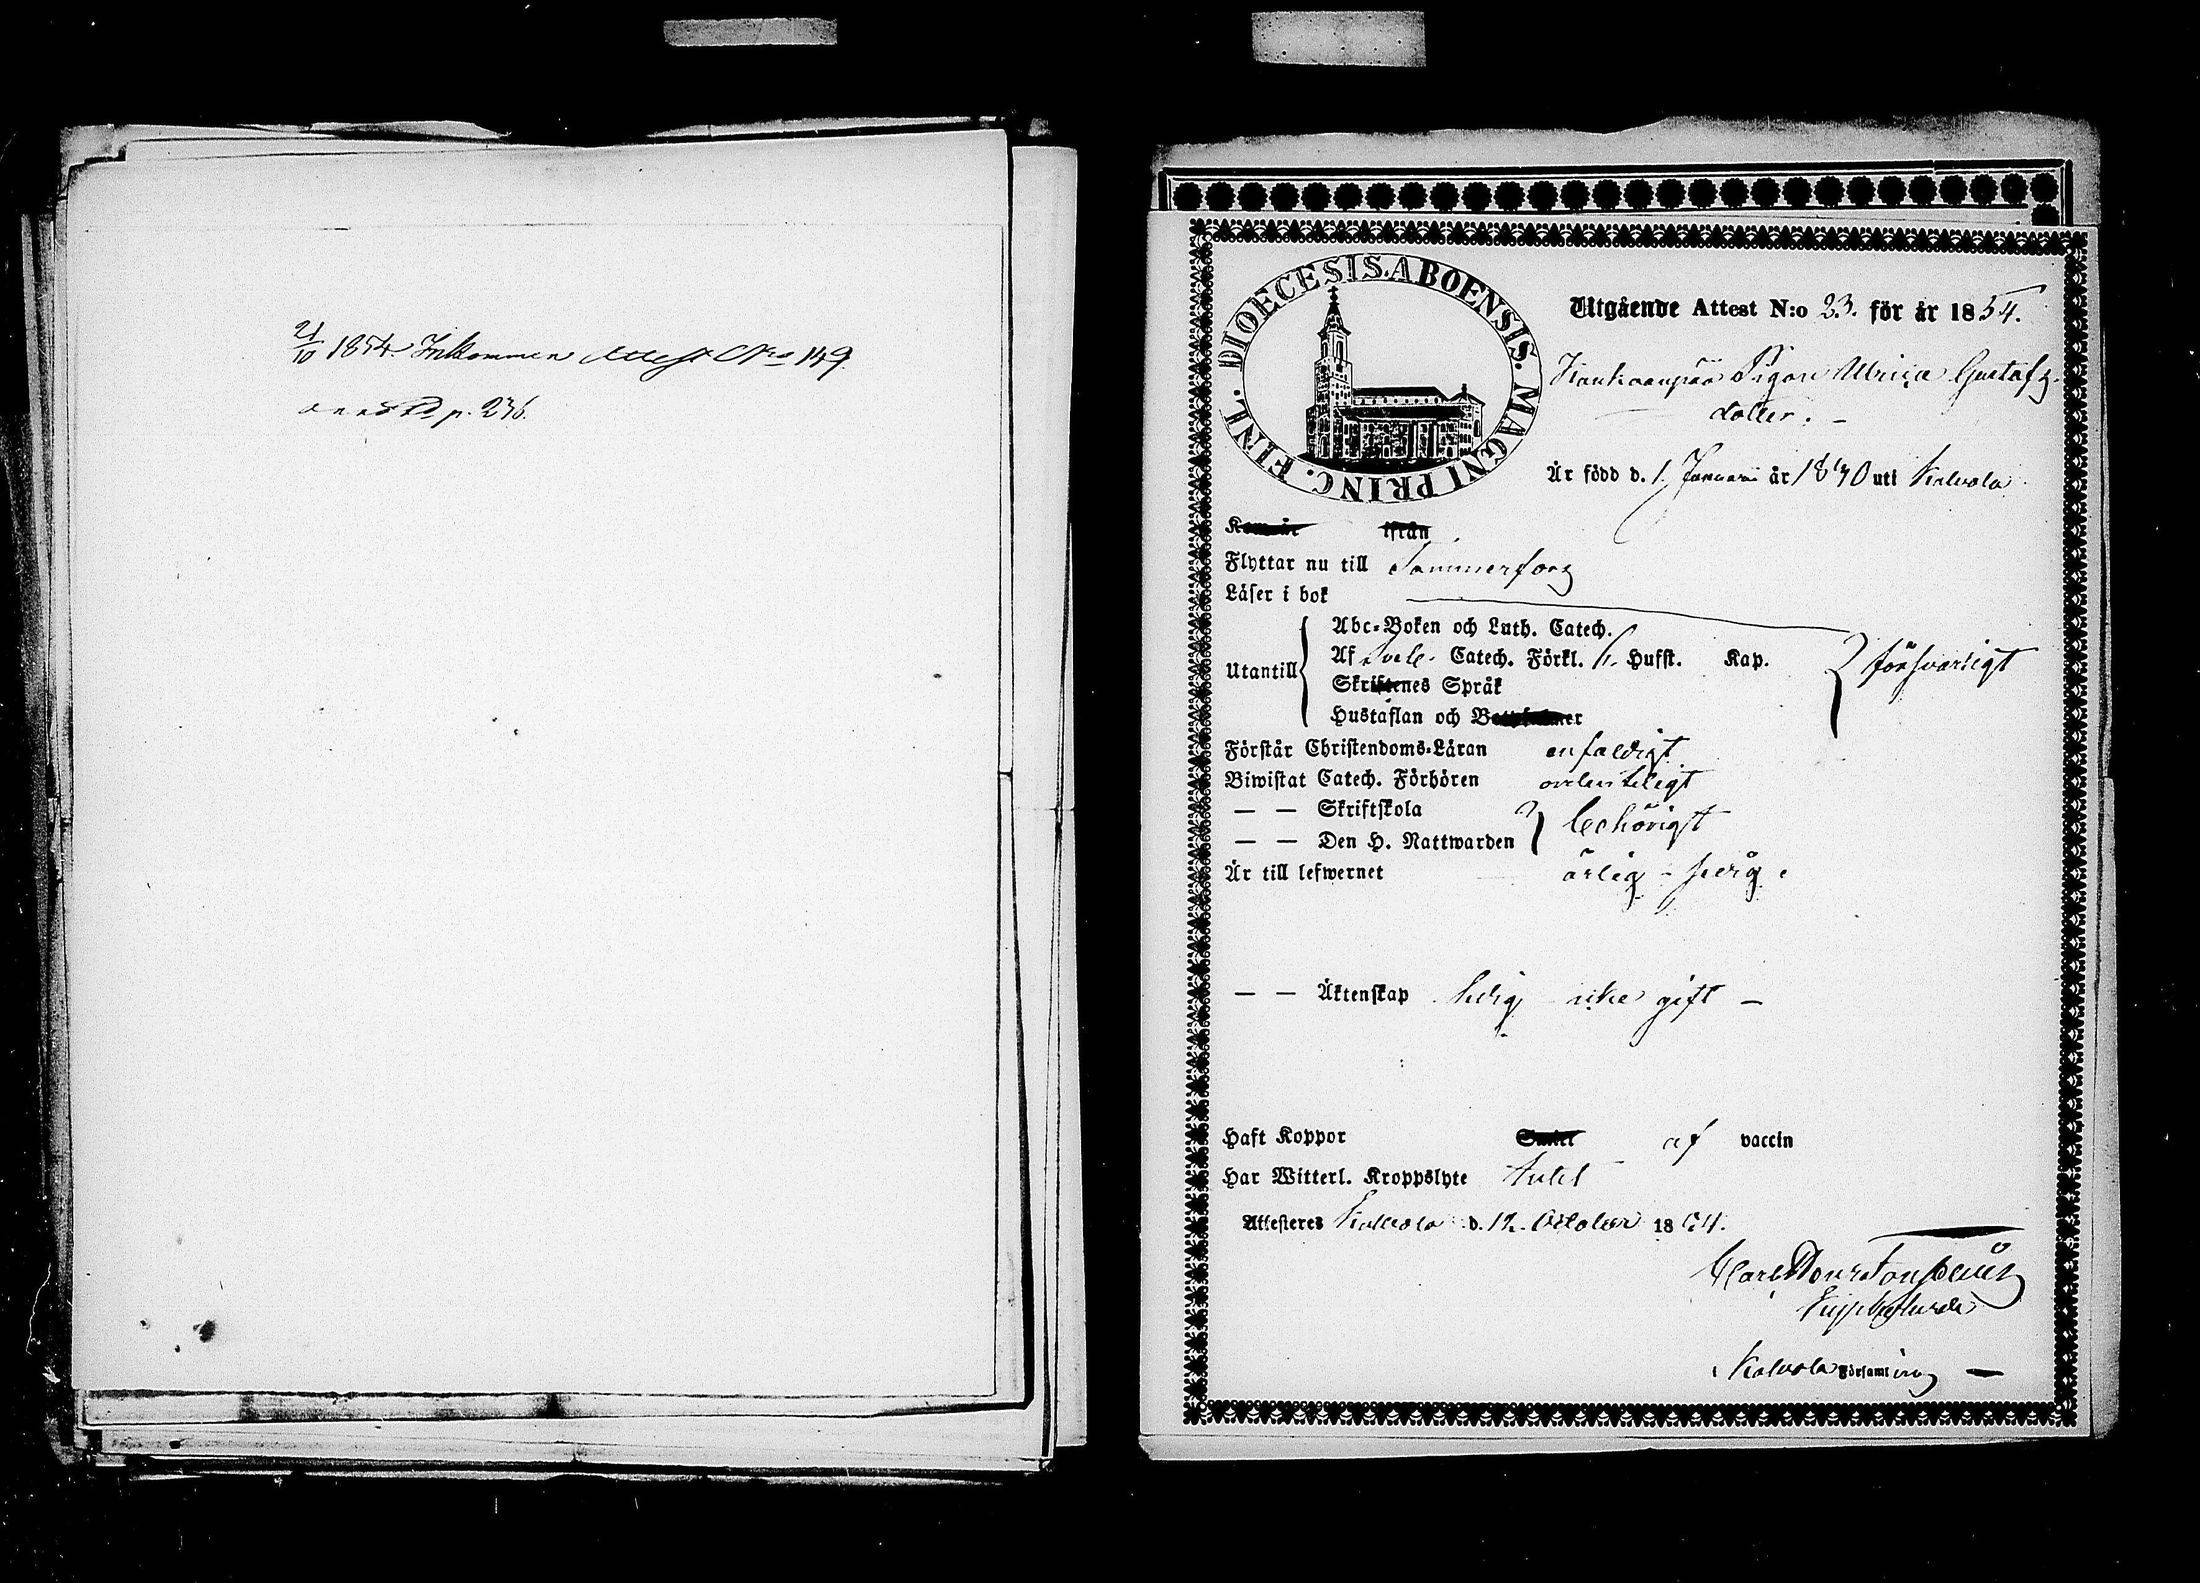 21/10 1854 Inkommen Attest No 149
p. 236.
DIOECESIS. ABOENSIS. MAGNI PRINC. FINL.
Utgående Attest N:o 23. för år 1854.
Kankaanpää Pigan Ulrica Gustafs
dotter. -
Är född d. 1 Januari år 1830 uti Kalvola
ifrån
Flyttar nu till Tammerfors
Läser i bok
Abc-Boken och Luth. Catech.
Utantill
Af Sveb. Catech. Förkl. Husst. Kap.
försvarligt
Skriftenes Språk
Hustaflan och Botpsalmer
Förstår Christendoms-Läran enfaldigt
Biwistat Catech. Förhören ordenteligt
— — Skriftskola
behörigt
— — Den H. Nattwarden
Är till lefwernet ärlig - frejd
— — Äktenskap ledig icke gift —
Haft Koppor af vaccin
Har Witterl. Kroppslyte Intet
Attesteres Kalvola d. 12 October 1854.
Carl
Kalvola Församling —